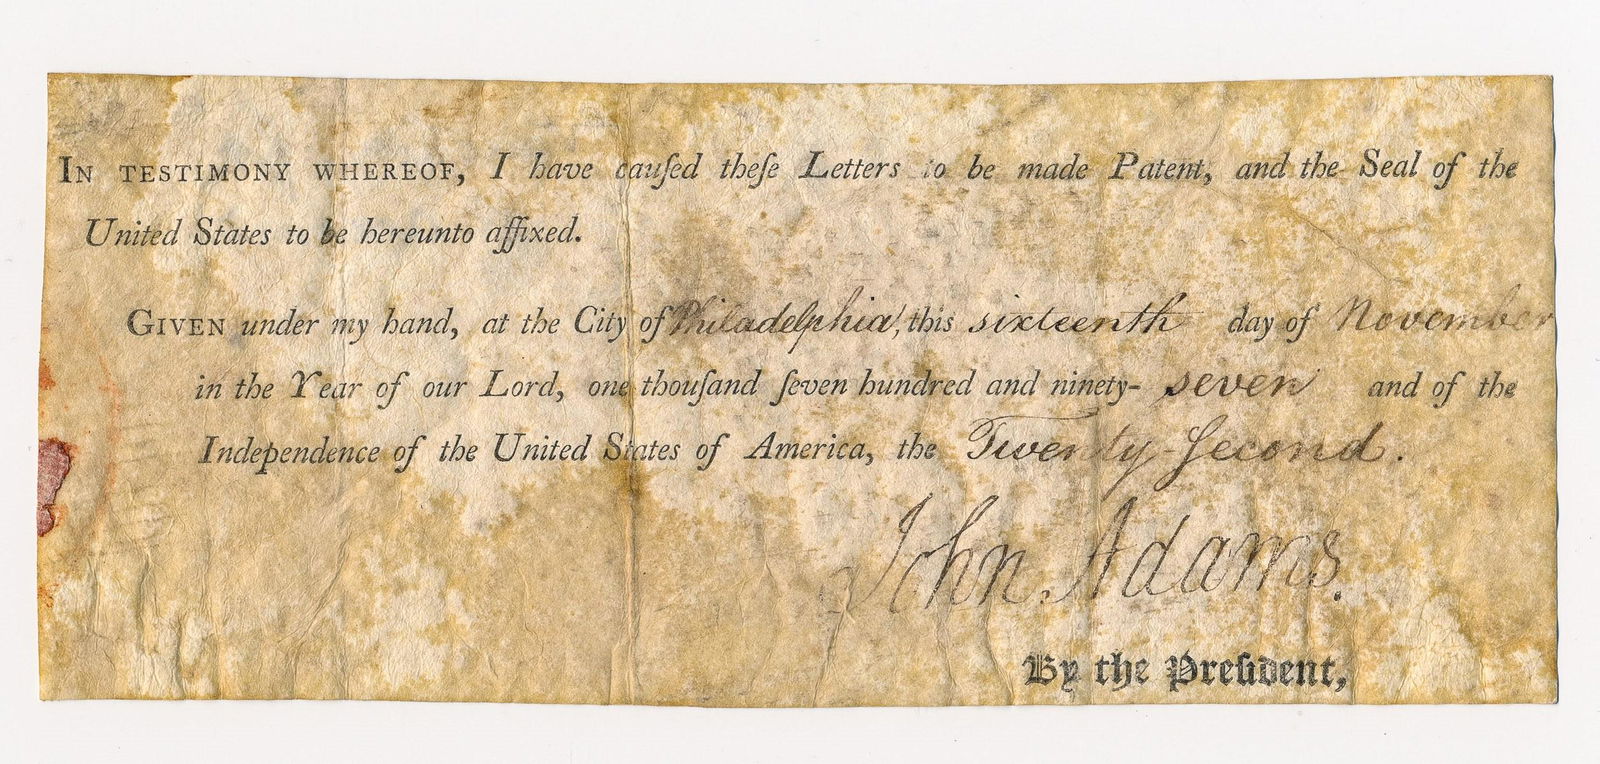 IN TESTIMONY WHEREOF, I have cauſed theſe Letters to be made Patent, and the Seal of the
United States to be hereunto affixed.
GIVEN under my hand, at the City of Philadelphia, this sixteenth day of November
in the Year of our Lord, one thouſand ſeven hundred and ninety- seven and of the
Independence of the United States of America, the Twenty-Second.
John Adams.
By the Preſident,